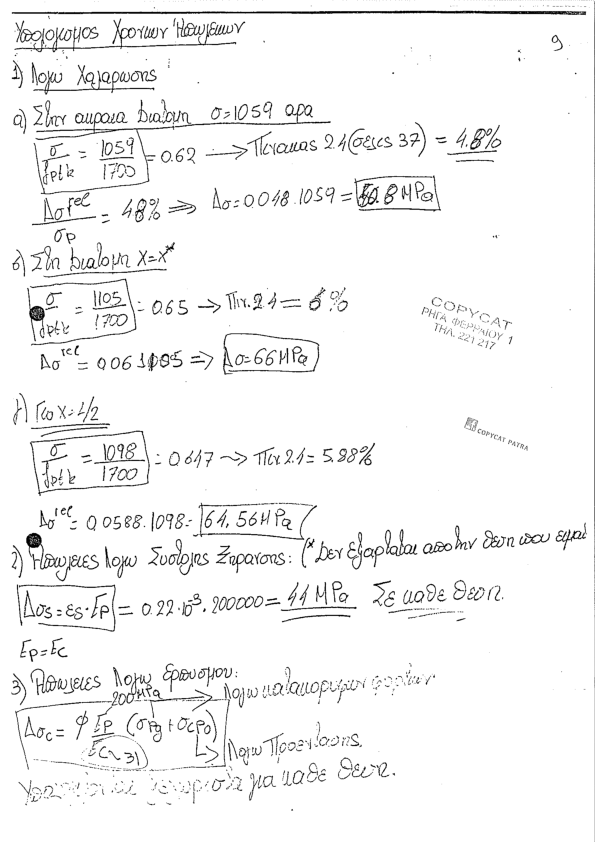 Υπολογισμος Χρονιων Απωλειων
9
1) Λογω Χαλαρωσης
α) Στην ακραια διατομη σ=1059 αρα
σ/fptk = 1059/1700 = 0.62 → Πινακας 2.4 (σελις 37) = 4.8%
Δσ^rel/σp = 4.8% ⇒ Δσ=0.048.1059 = 50.8 MPa
β) Στη διατομη X=X*
σ/fptk = 1105/1700 = 0.65 → Πιν. 2.4 = 6%
Δσ^rel = 0.06.1105 ⇒ Δσ=66MPa
COPYCAT
ΡΗΓΑ ΦΕΡΡΑΙΟΥ 1
ΤΗΛ. 221 217
γ) Για X=L/2
COPYCAT PATRA
σ/fptk = 1098/1700 = 0.647 → Πιν 2.4 = 5.88%
Δσ^rel = 0.0588.1098 = 64.56MPa
2) Απωλειες λογω Συστολης Ξηρανσης: (* Δεν εξαρταται απο την θεση που ειμαι
Δσs = εs·Ep = 0.22·10^-3.200000 = 44 MPa Σε καθε θεση.
Ep=Ec
3) Απωλειες Λογω Ερπυσμου:
200MPa → Λογω κατακορυφων φορτιων
Δσc = φ Ep/Ec~31 (σpg + σcpo)
Λογω Προεντασης.
Υπολογιζεται ξεχωριστα για καθε θεση.